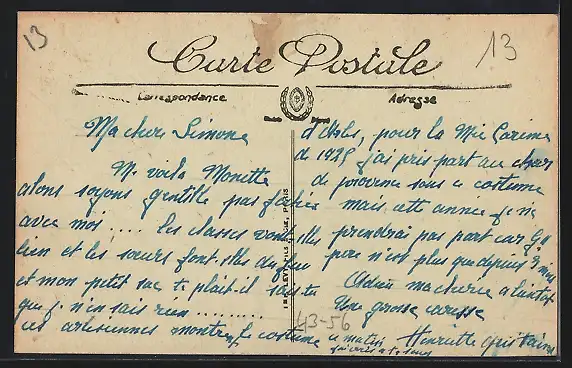 13
13
Carte Postale
Correspondance
Adresse
Ma chère Simone
M. voilà Monette
alons soyons gentille pas fachée
avec moi..... les classes vont elles
bien et les sœurs font elles du
et mon petit sac te plait-il sais tu
que je n'en sais rien..........
ces arlesiennes montre le costume
d'Arles, pour la Mie Carême
de 1925 j'ai pris part au char
de provence sous ce costume
mais cette année je ne
prendrai pas part car
père n'est plus depuis 3 mois
Adieu ma cherie a bientot
Une grosse caresse
ce matin Henriette
IMP. LEVY FILS PARIS
43-56